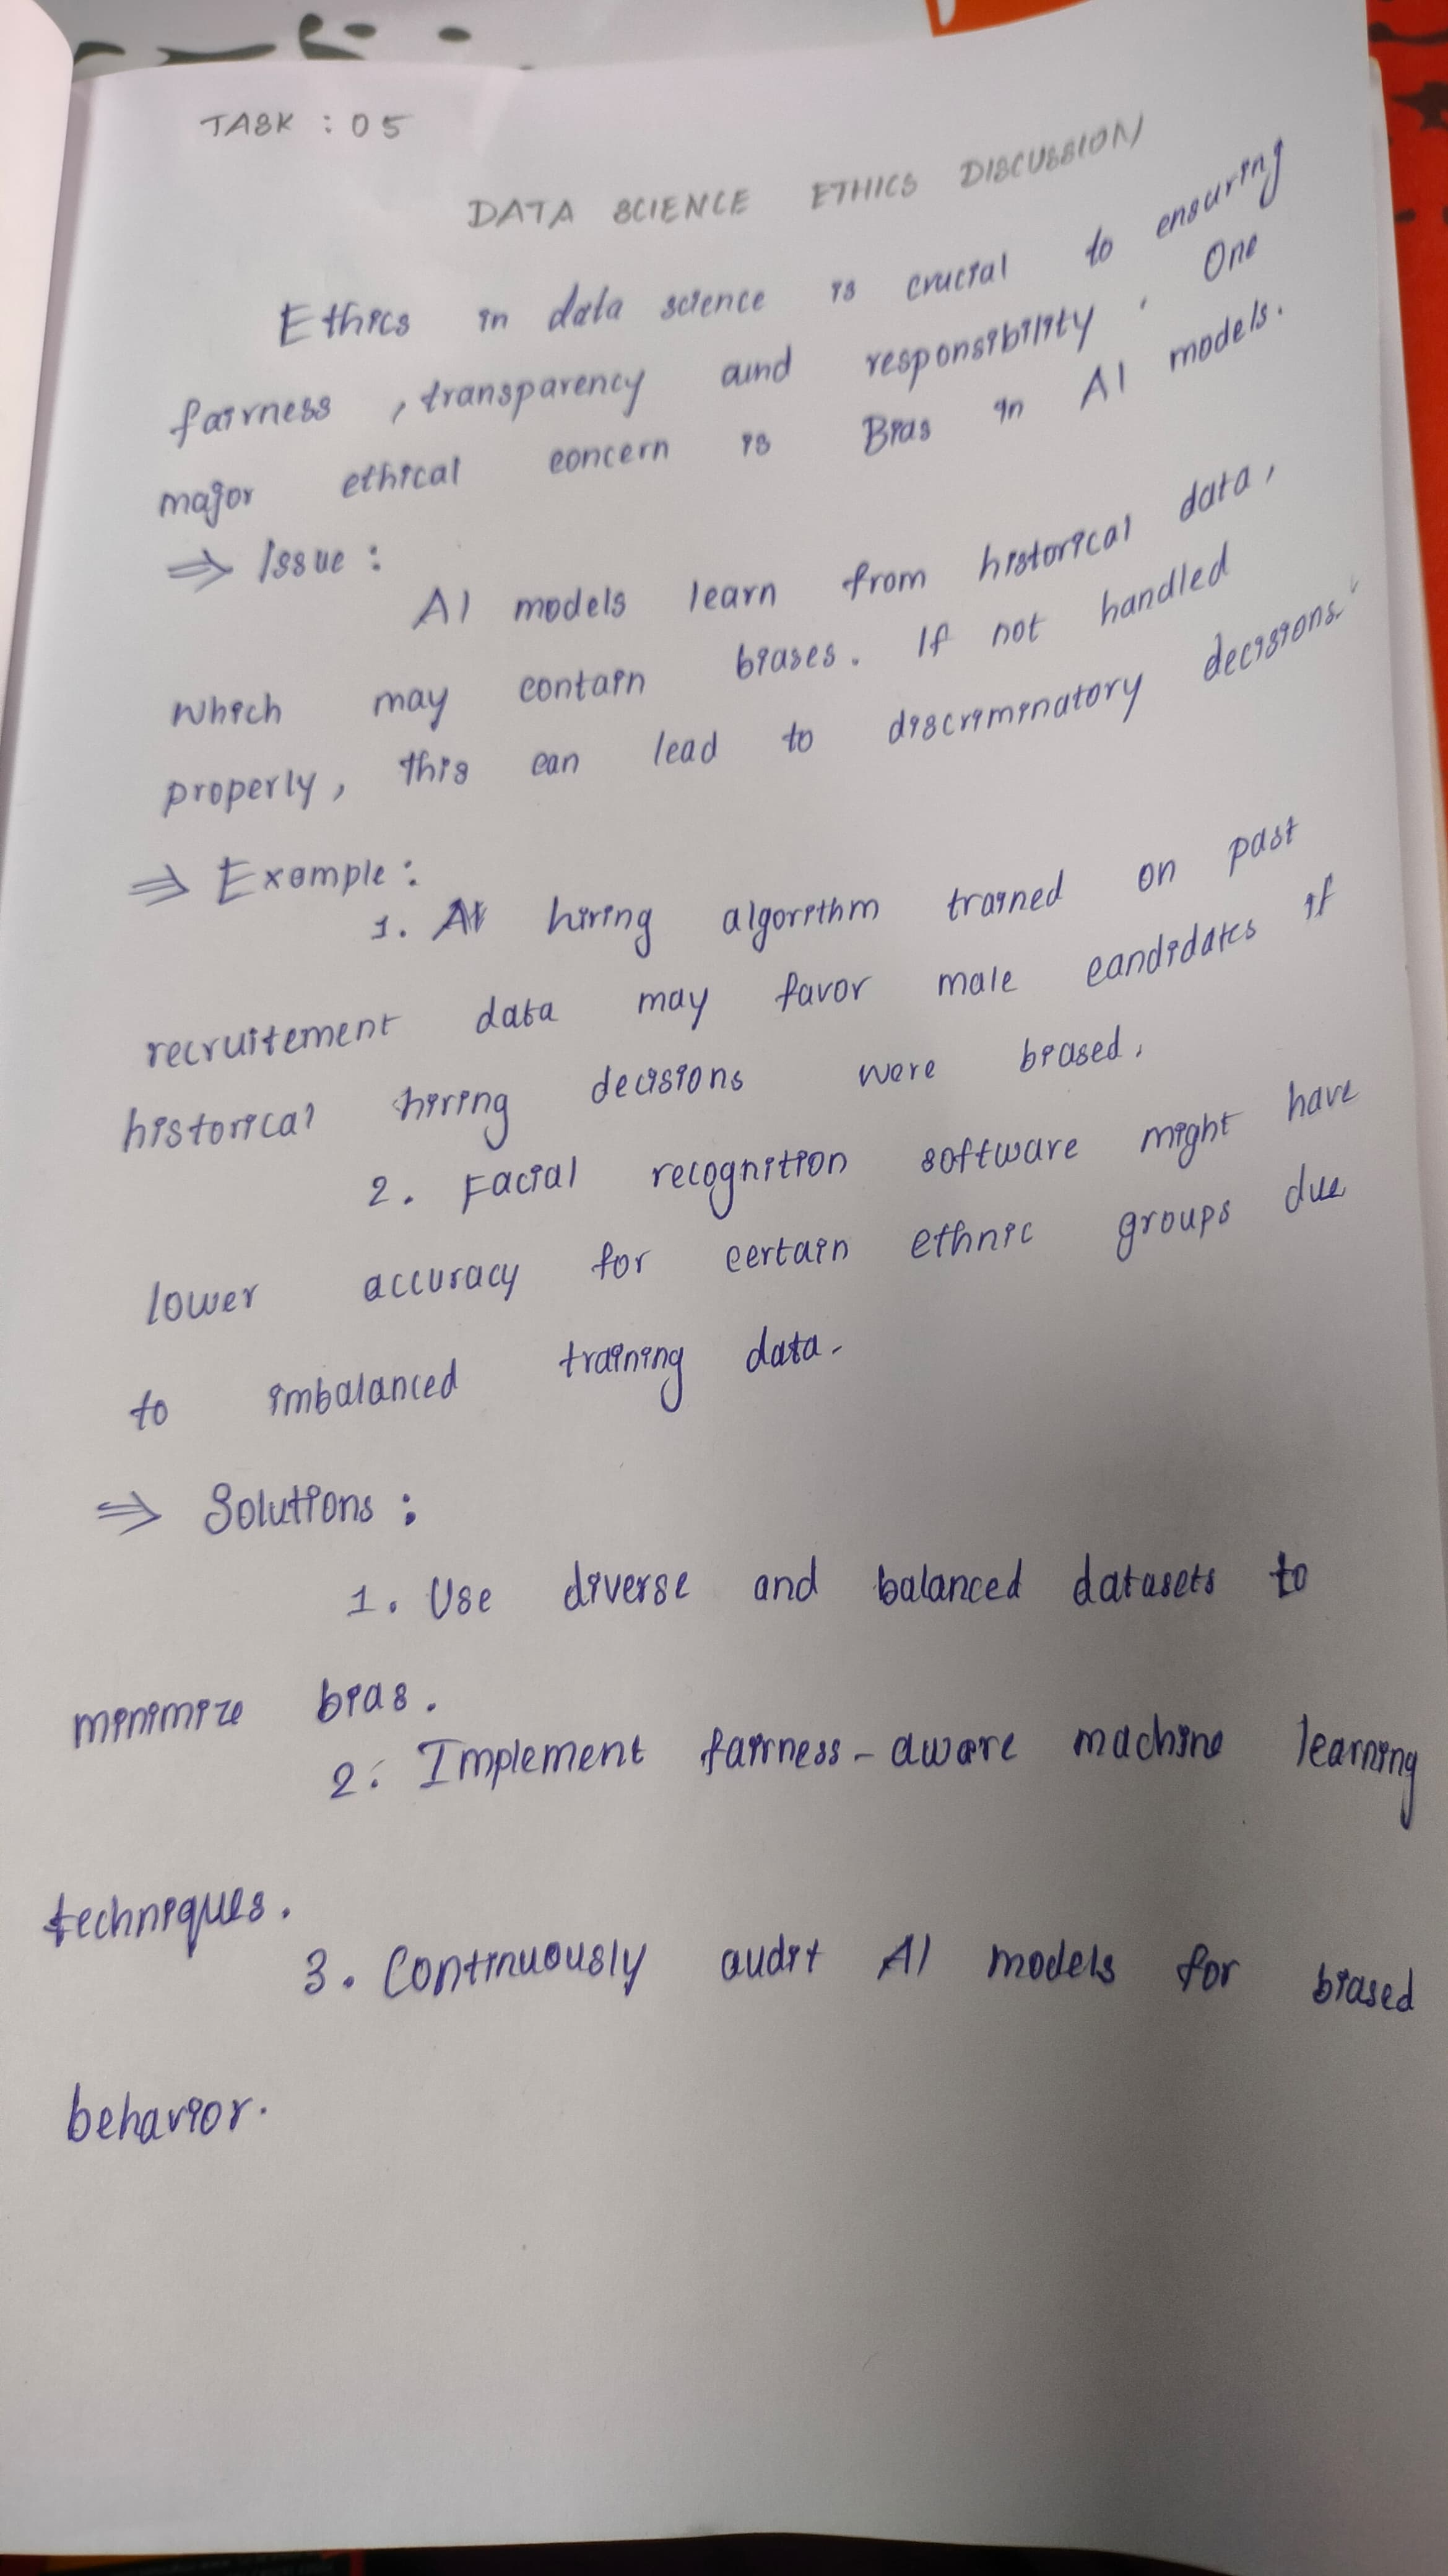 TASK : 05
DATA SCIENCE ETHICS DISCUSSION
Ethics in data science is crucial to ensuring
fairness , transparency aund responsibility . One
major ethical concern is Bias in AI models.
⇒ Issue :
AI models learn from historical data,
which may contain biases. If not handled
properly, this can lead to discriminatory decisions.
⇒ Example :
1. AI hiring algorithm trained on past
recruitement data may favor male candidates if
historical hiring decisions were biased.
2. Facial recognition software might have
lower accuracy for certain ethnic groups due
to imbalanced training data.
⇒ Solutions :
1. Use diverse and balanced datasets to
minimize bias.
2. Implement fairness-aware machine learning
techniques.
3. Continuously audit AI models for biased
behavior.